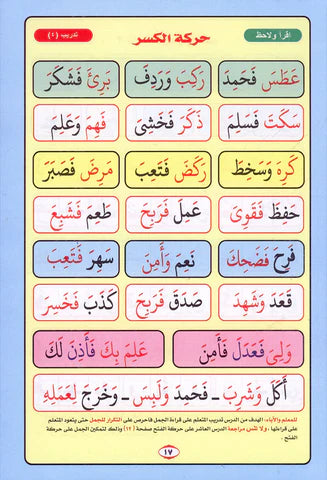 اقرأ ولاحظ حركة الكسر تدريب (٤)
عَطَسَ فَحَمِدَ رَكِبَ وَرَدِفَ بَرِئَ فَشَكَرَ
سَكَتَ فَسَلِمَ ذَكَرَ فَخَشِيَ فَهِمَ وَعَلِمَ
كَرِهَ وَسَخِطَ رَكَضَ فَتَعِبَ مَرِضَ فَصَبَرَ
حَفِظَ فَقَوِيَ عَمِلَ فَرَبِحَ طَعِمَ فَشَبِعَ
فَرِحَ فَضَحِكَ نَعِمَ وَأَمِنَ سَهِرَ فَتَعِبَ
قَعَدَ وَشَهِدَ صَدَقَ فَرَبِحَ كَذَبَ فَخَسِرَ
وَلِيَ فَعَدَلَ فَأَمِنَ عَلِمَ بِكَ فَأَذِنَ لَكَ
أَكَلَ وَشَرِبَ ـ فَحَمِدَ وَلَبِسَ ـ وَخَرَجَ لِعَمَلِهِ
للمعلم والآباء: الهدف من الدرس تدريب المتعلم على قراءة الجمل فاحرص على التكرار للجمل حتى يتعود المتعلم
على قراءتها ، ولا تنس مراجعة الدرس العاشر على حركة الفتح صفحة (١٢) وذلك لتمكين الجمل على حركة
الفتح .
١٧